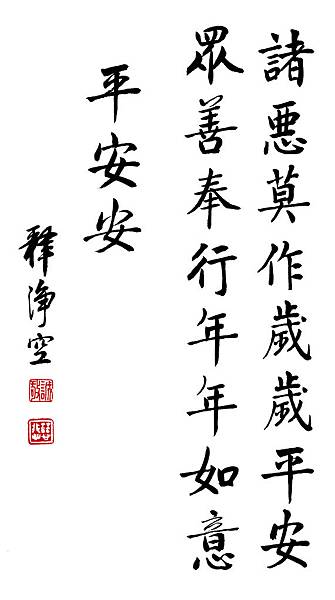 諸惡莫作歲歲平安
眾善奉行年年如意
平安安
釋淨空